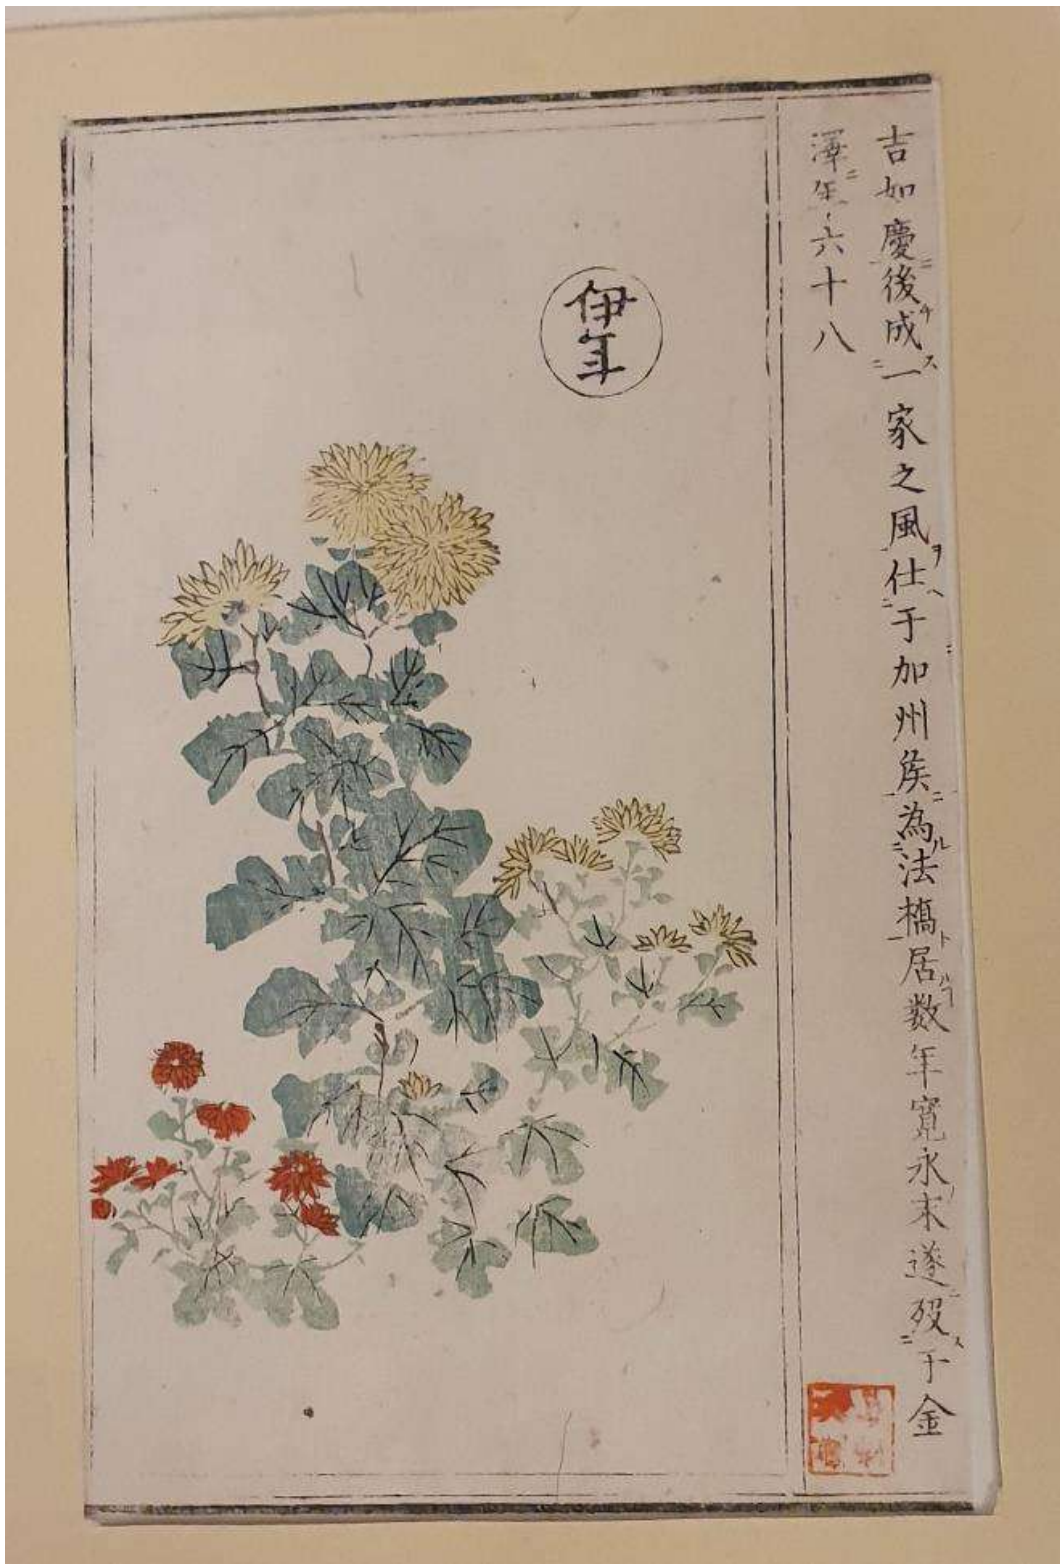 吉如慶後成一家之風仕于加州矦為法橋居数年寛永末遂殁于金
澤年六十八
伊年